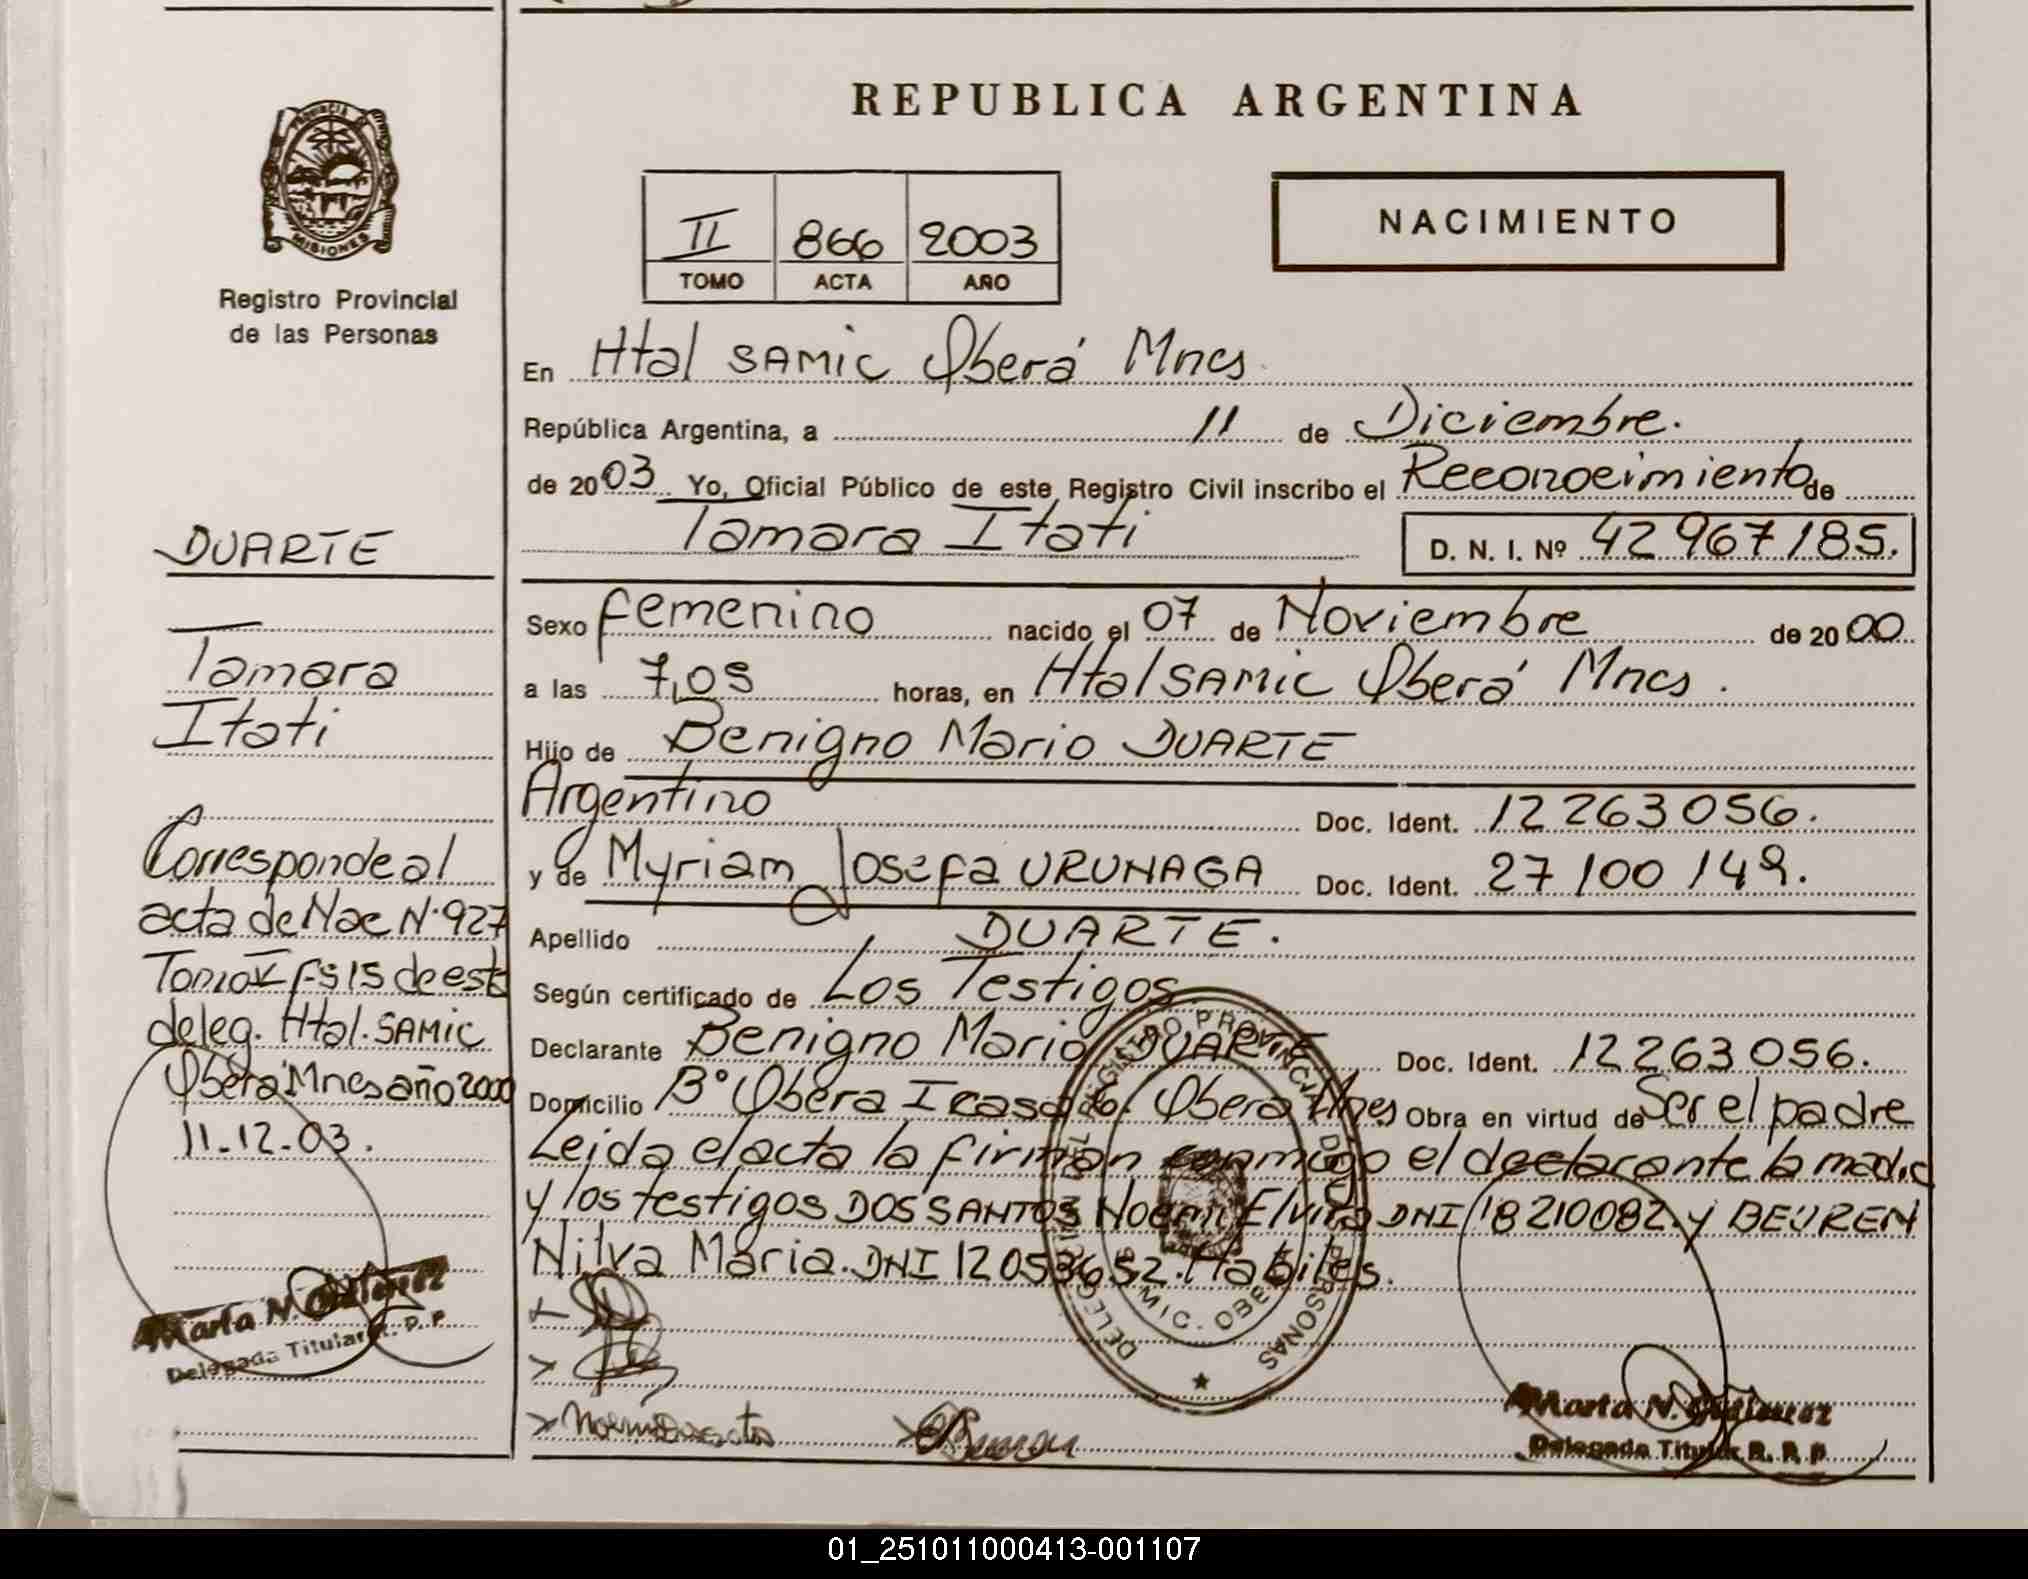 REPUBLICA ARGENTINA
PROVINCIA DE
MISIONES
Registro Provincial
de las Personas
II 866 2003
TOMO ACTA AÑO
NACIMIENTO
En Htal SAMIC Oberá Mnes.
República Argentina, a 11 de Diciembre.
de 2003 Yo, Oficial Público de este Registro Civil inscribo el Reconocimiento de
Tamara Itati D. N. I. Nº 42 967 185.
Sexo femenino nacido el 07 de Noviembre de 2000
a las 7,05 horas, en Htal SAMIC Oberá Mnes.
Hijo de Benigno Mario DUARTE
Argentino Doc. Ident. 12 263 056.
y de Myriam Josefa URUNAGA Doc. Ident. 27 100 149.
Apellido DUARTE.
Según certificado de Los Testigos
Declarante Benigno Mario DUARTE Doc. Ident. 12 263 056.
Domicilio B° Obera I casa 6. Obera Mnes Obra en virtud de Ser el padre
Leida el acta la firman conmigo el declarante la madre
y los testigos DOS SANTOS Noemi Elvira DNI 18 210082. y BEUREN
Nilva Maria. DNI 12 053652. Habiles.
DUARTE
Tamara
Itati
Corresponde al
acta de Nac N° 927
Tomo V fs 15 de esta
deleg. Htal. SAMIC
Obera Mnes año 2000
11-12-03.
Marta N. Gutierrez
Delegada Titular R. P. P.
Marta N. Gutierrez
Delegada Titular R. P. P.
01_251011000413-001107